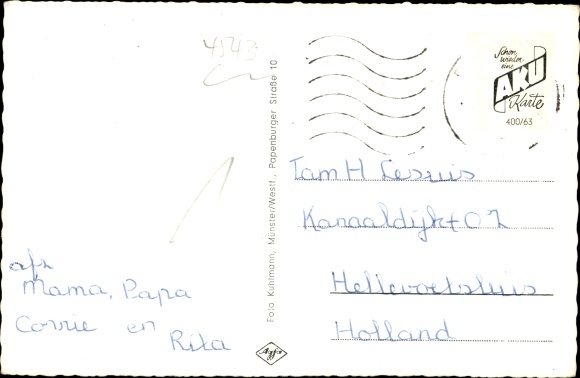 4543
Schon
wieder
eine
AKU
Karte
400/63
Foto Kuhlmann, Münster/Westf., Papenburger Straße 10
Kanaaldijk
Hellevoetsluis
Holland
afz
Mama, Papa
Corrie en
Rita
Agfa